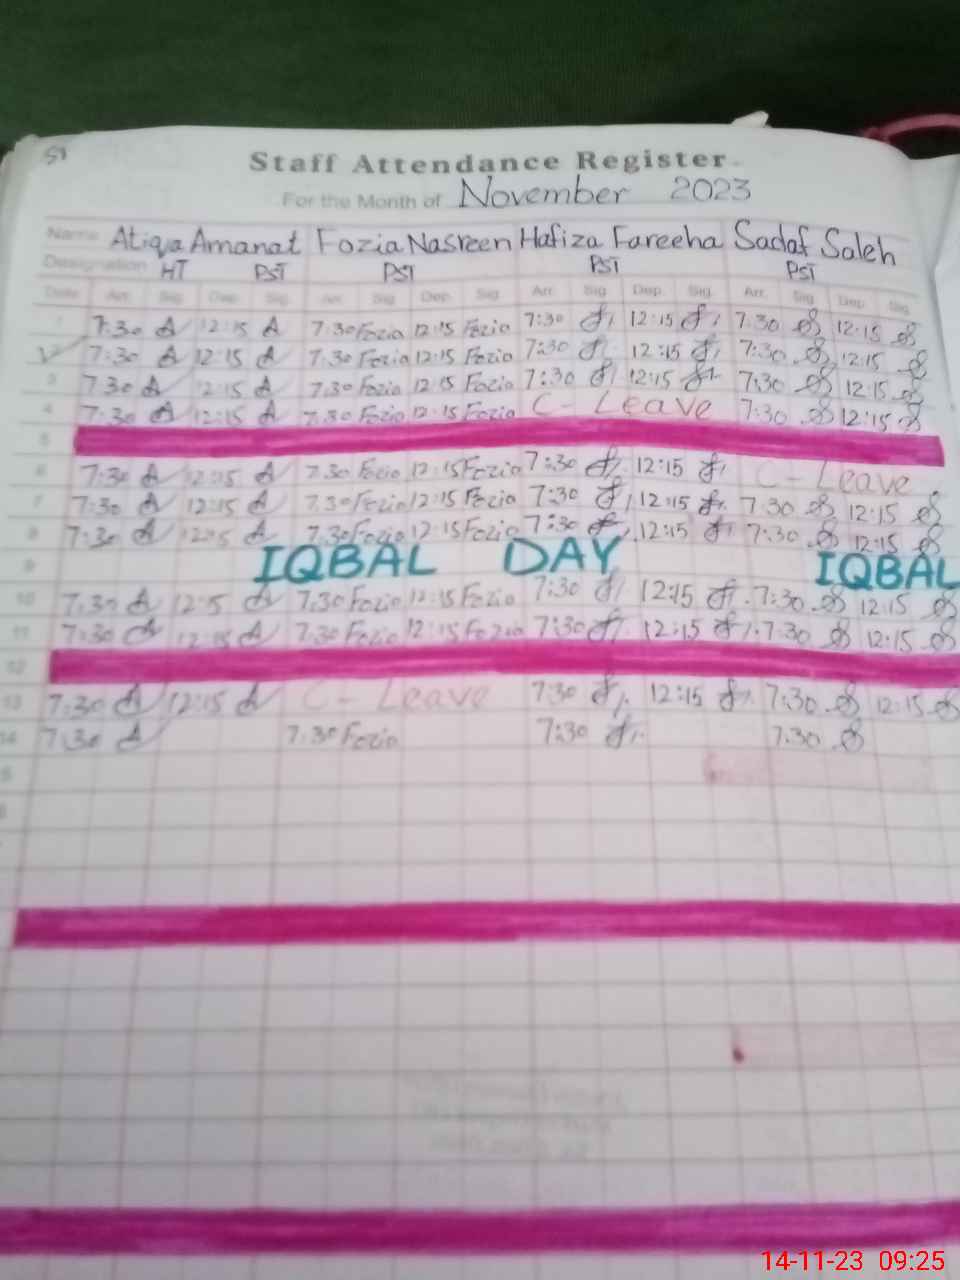 51
Staff Attendance Register
For the Month of November 2023
Name Atiqa Amanat Fozia Nasreen Hafiza Fareeha Sadaf Saleh
Designation HT PST PST PST PST
Date Arr. Sig. Dep. Sig. Arr. Sig. Dep. Sig. Arr. Sig. Dep. Sig. Arr. Sig. Dep. Sig.
1 7:30 A 12:15 A 7:30 Fozia 12:15 Fozia 7:30 12:15 7:30 12:15
7:30 A 12:15 A 7:30 Fozia 12:15 Fozia 7:30 12:15 7:30 12:15
3 7:30 A 12:15 A 7:30 Fozia 12:15 Fozia 7:30 12:15 7:30 12:15
4 7:30 A 12:15 A 7:30 Fozia 12:15 Fozia C- Leave 7:30 12:15
5
6 7:30 A 12:15 A 7:30 Fozia 12:15 Fozia 7:30 12:15 C- Leave
7 7:30 A 12:15 A 7:30 Fozia 12:15 Fozia 7:30 12:15 7:30 12:15
8 7:30 A A 7:30 Fozia 12:15 Fozia 7:30 12:15 7:30 12:15
9 IQBAL DAY IQBAL
10 7:30 A A 7:30 Fozia 12:15 Fozia 7:30 12:15 7:30 12:15
11 7:30 A 12:15 A 7:30 Fozia 12:15 Fozia 7:30 12:15 7:30 12:15
12
13 7:30 A 12:15 A C- Leave 7:30 12:15 7:30 12:15
14 7:30 A 7:30 Fozia 7:30 7:30
14-11-23 09:25